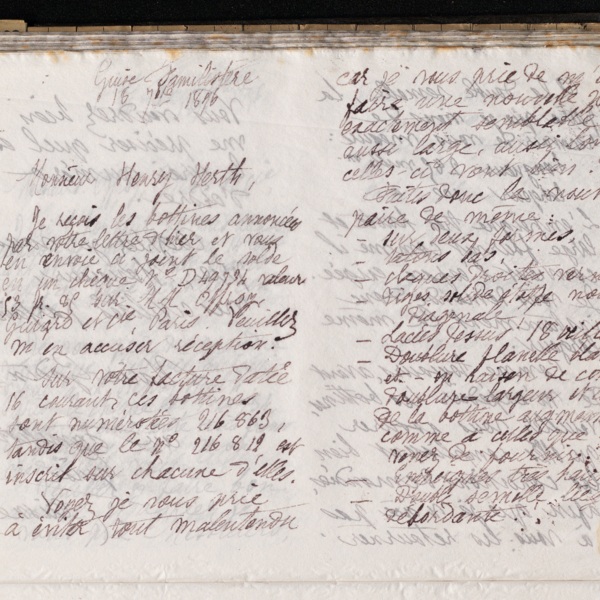 Guise Familistère
16 7bre 1896
Monsieur Henry Hertth,
Je reçois les bottines annoncées
par votre lettre d'hier et vous
en envoie ci joint le solde
en un chèque No D49724 valeur
52 f. 85 sur MM
Girard et Cie, Paris. Veuillez
m'en accuser réception.
Sur votre facture datée
16 courant, ces bottines
sont numérotées 216 863,
tandis que le no 216 819 est
inscrit sur chacune d'elles.
Voyez je vous prie
à éviter tout malentendu
car je vous prie de m'
faire une nouvelle
exactement semblable
aussi large, aussi
celles-ci vont bien.
Faites donc la nouv
paire de même:
- sur deux formes,
- talons bas,
- claques droites ver
tiges soldegtoffe no
Diagonale
- Lacées dessus 18 oeille
- Doublure flanelle bla
et - en raison de
doublure largeur et
de la bottine augmen
comme à celles que
venez de fournir.
-
- Double semelle
débordante.